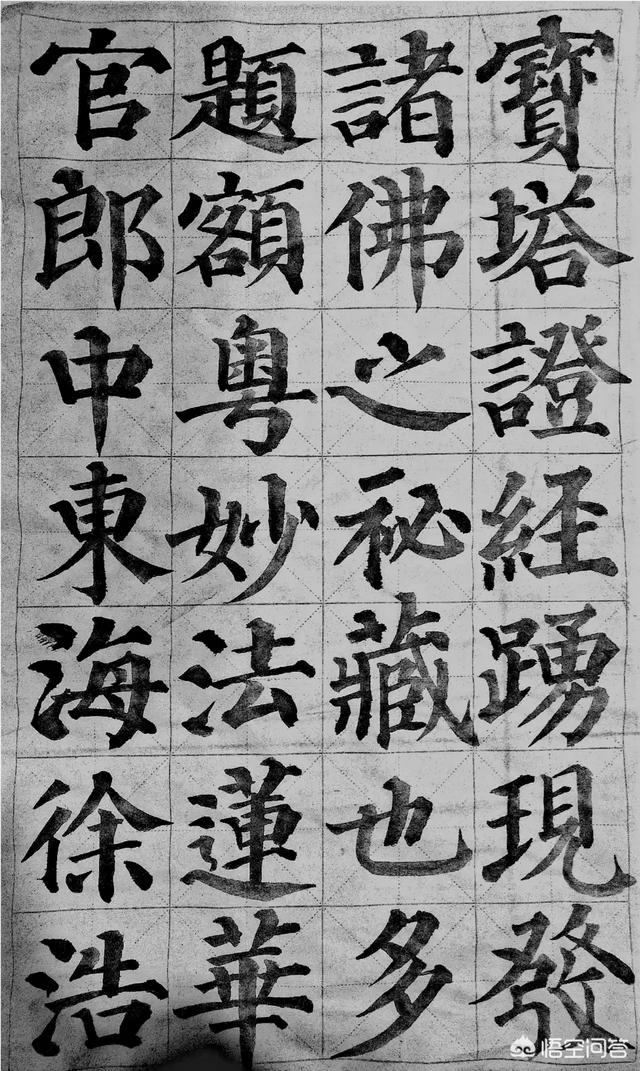 寶塔證經踴現發
諸佛之祕藏也多
題額粵妙法蓮華
官郎中東海徐浩
悟空问答